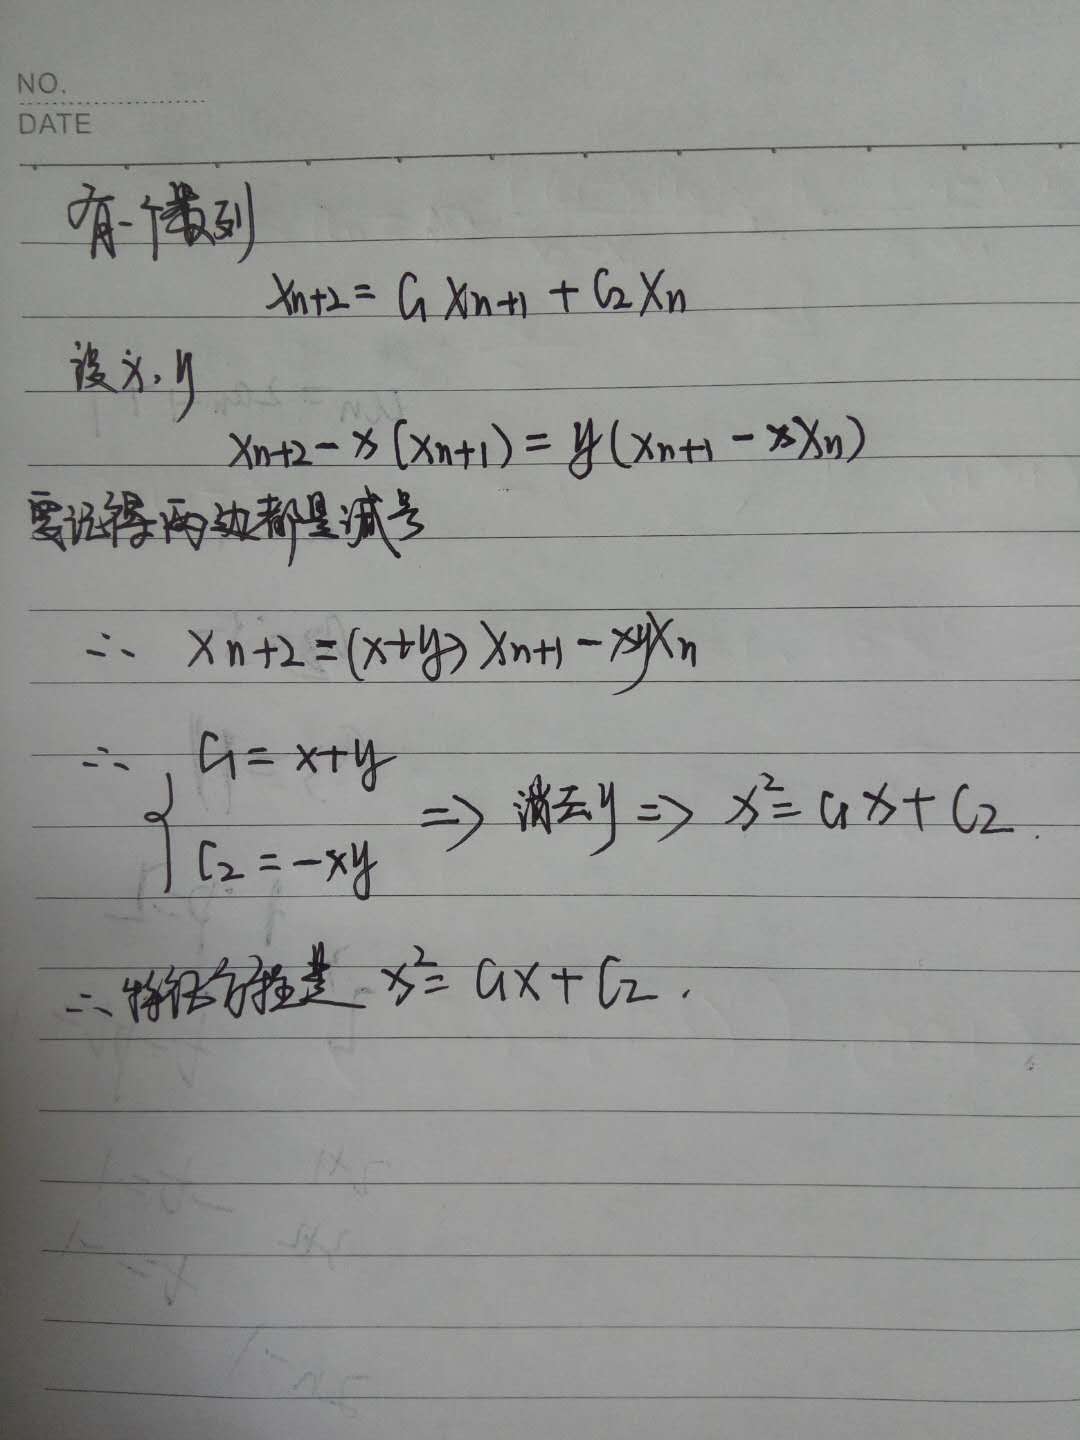 NO.
DATE
有一个数列
Xn+2 = C1 Xn+1 + C2 Xn
设 x, y
Xn+2 - x (Xn+1) = y (Xn+1 - x Xn)
要记得两边都是减号
∴ Xn+2 = (x+y) Xn+1 - xy Xn
∴ { C1 = x+y
C2 = -xy
=> 消去y => x² = C1 x + C2 .
∴ 特征方程是 x² = C1 x + C2 .